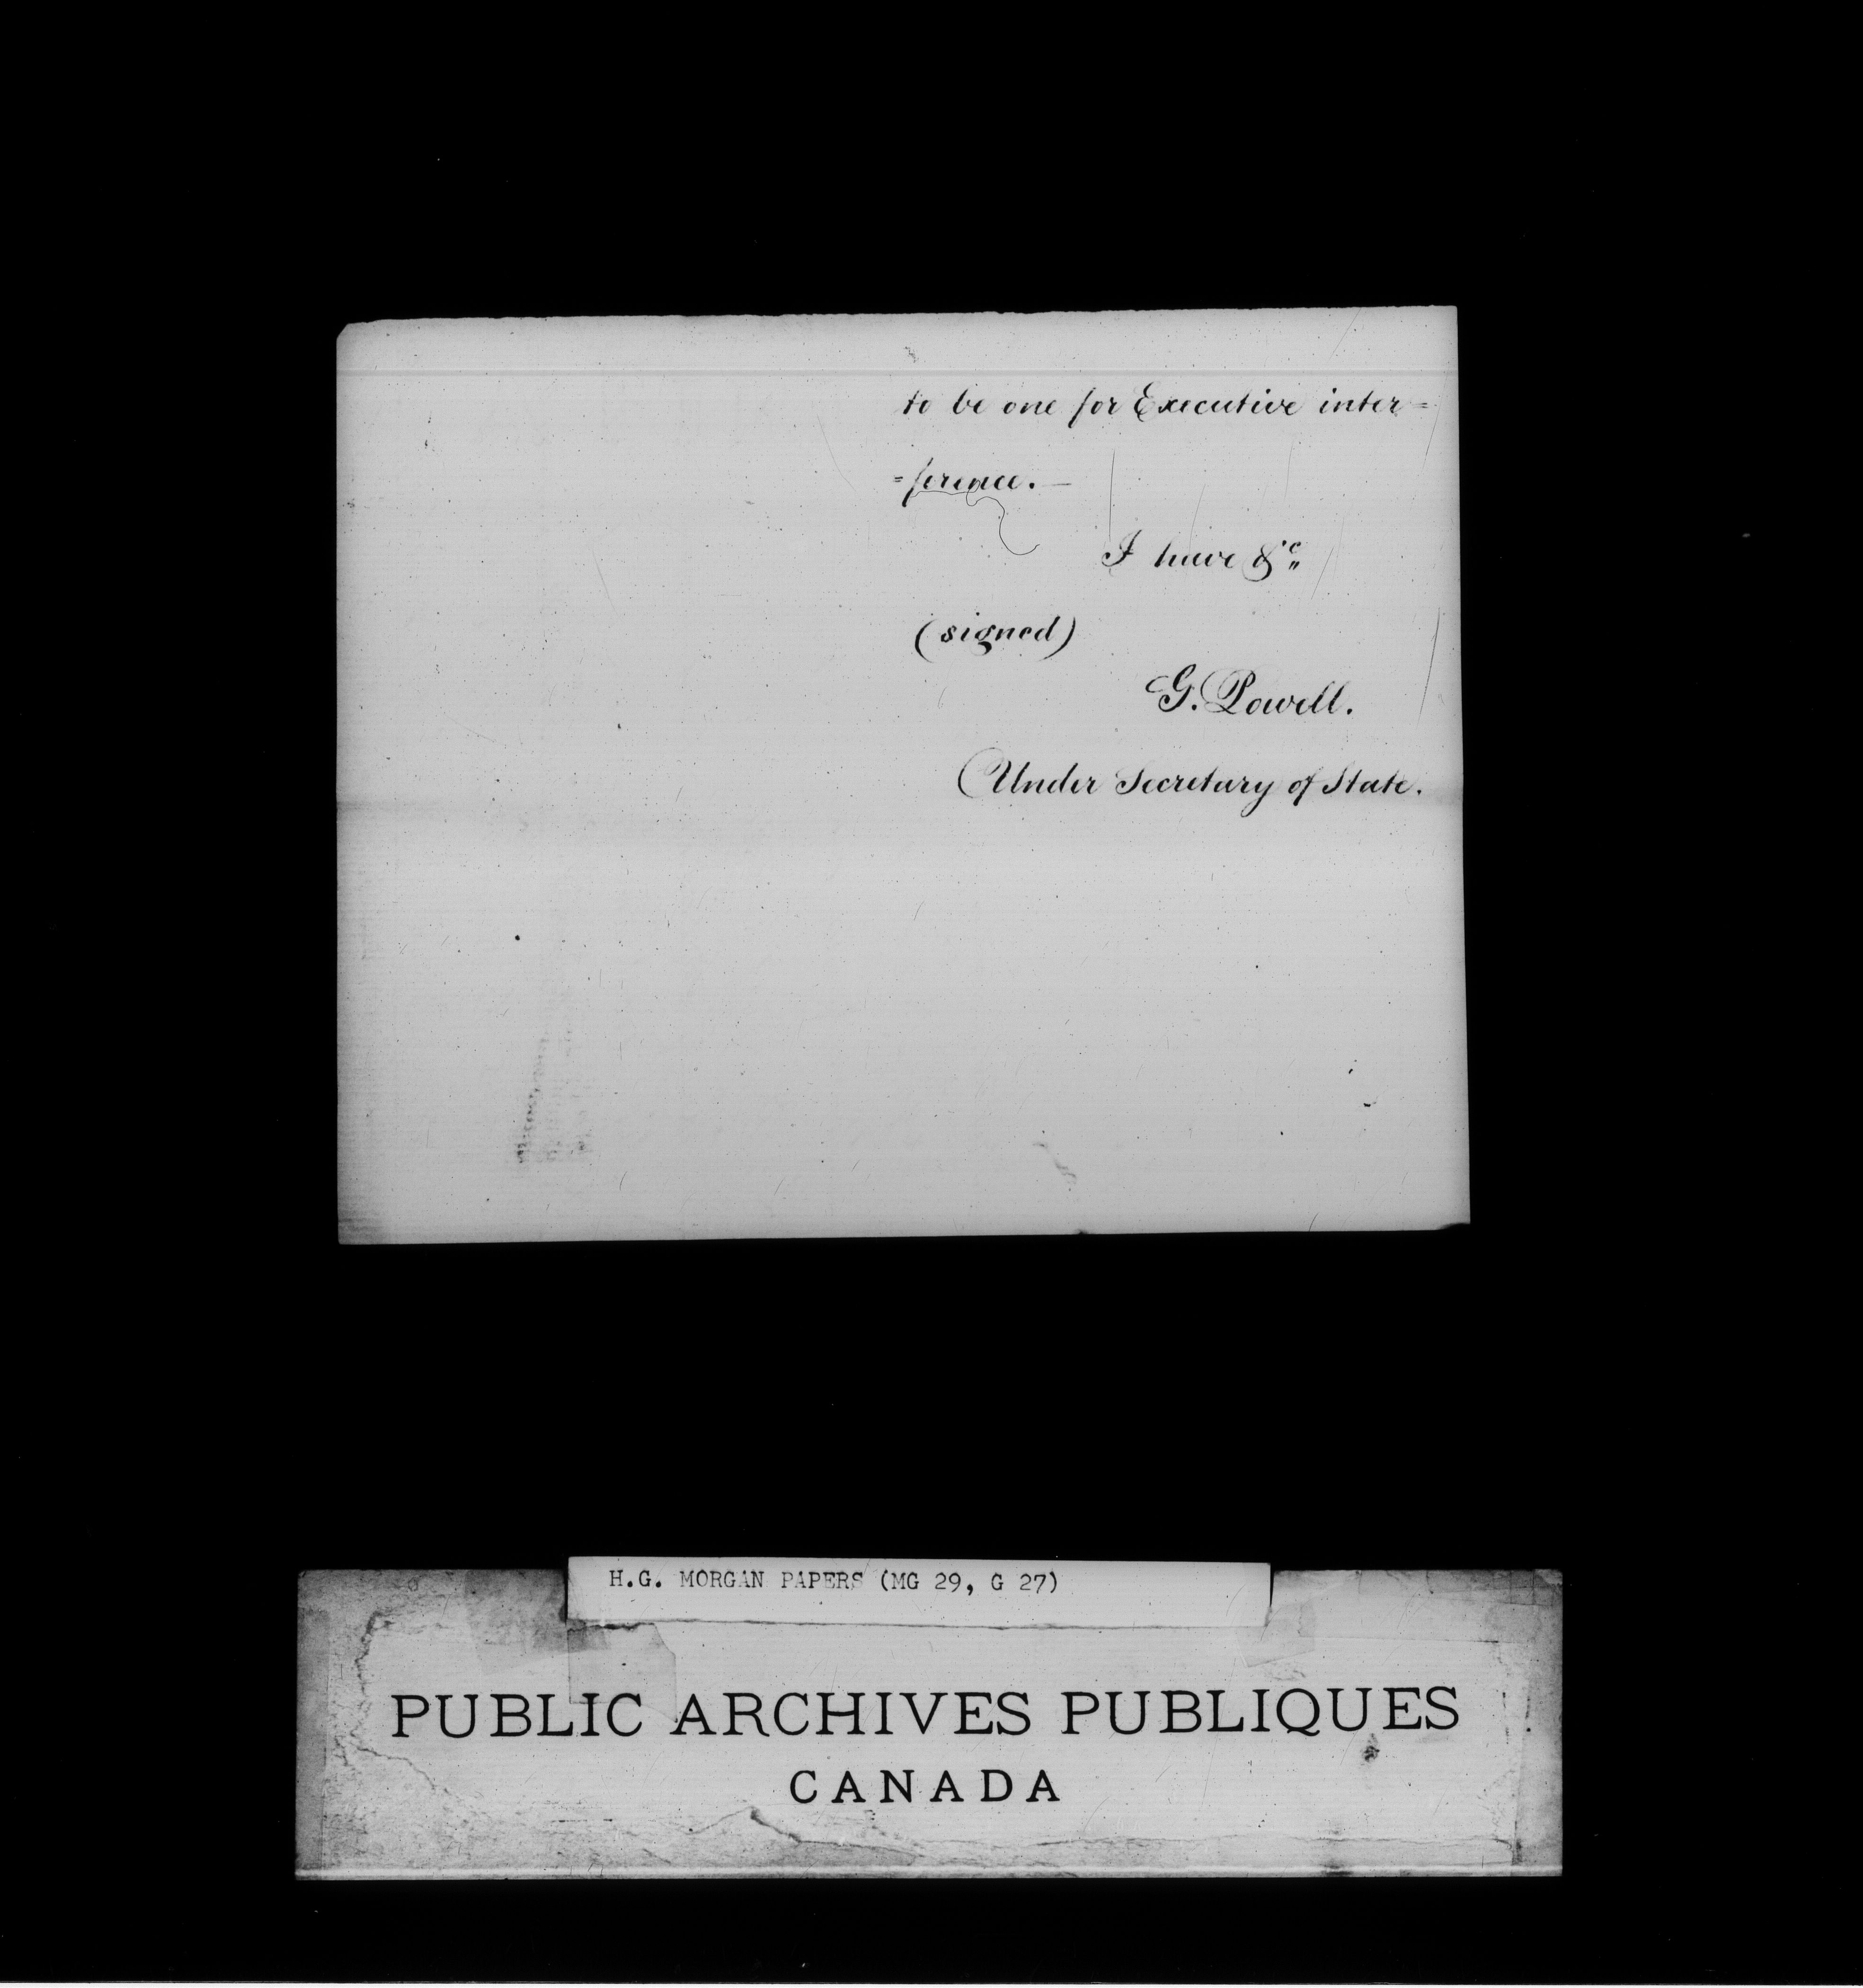 to be one for Executive inter=
=ference.—
I have &c
(signed)
G. Powell.
Under Secretary of State.
H.G. MORGAN PAPERS (MG 29, G 27)
PUBLIC ARCHIVES PUBLIQUES
CANADA